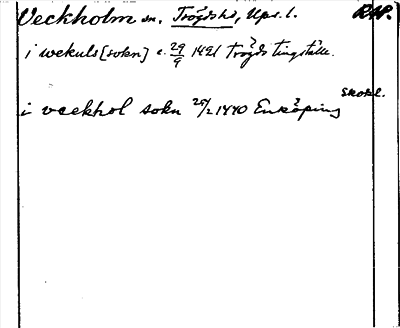 Veckholm sn. Trögds hd, Upps. l. RAP.
i wekuls [sokn] c. 29/9 1421 Trögds tingställe.
Skokl.
i veckhol sokn 25/2 1440 Enköping